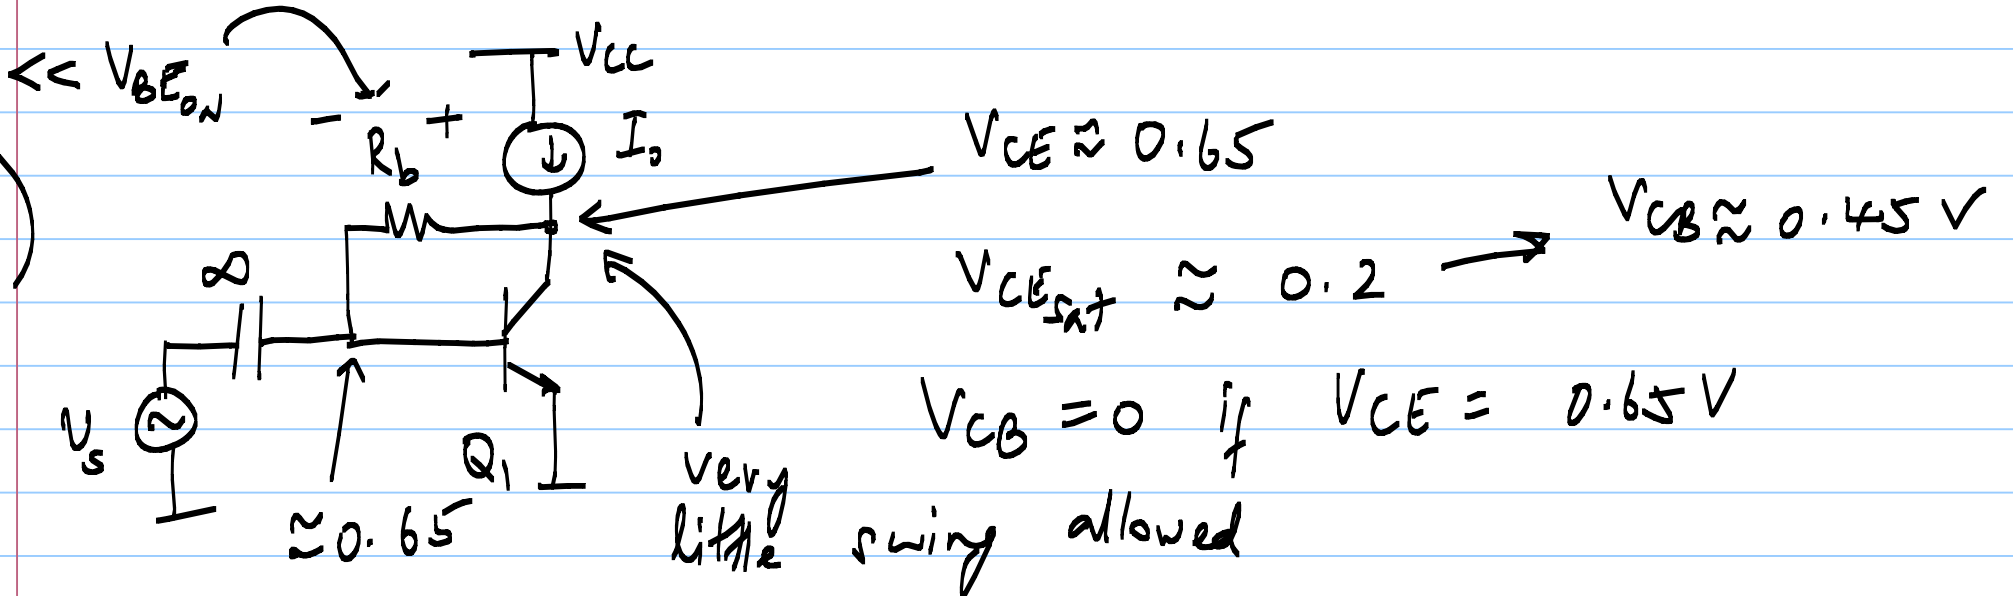 << V_BE_ON
V_CC
- R_b +
I_0
V_CE ≈ 0.65
V_CB ≈ 0.45 V
∞
V_CE_sat ≈ 0.2
V_CB = 0 if V_CE = 0.65 V
v_s
Q_1
≈ 0.65
very
little swing allowed